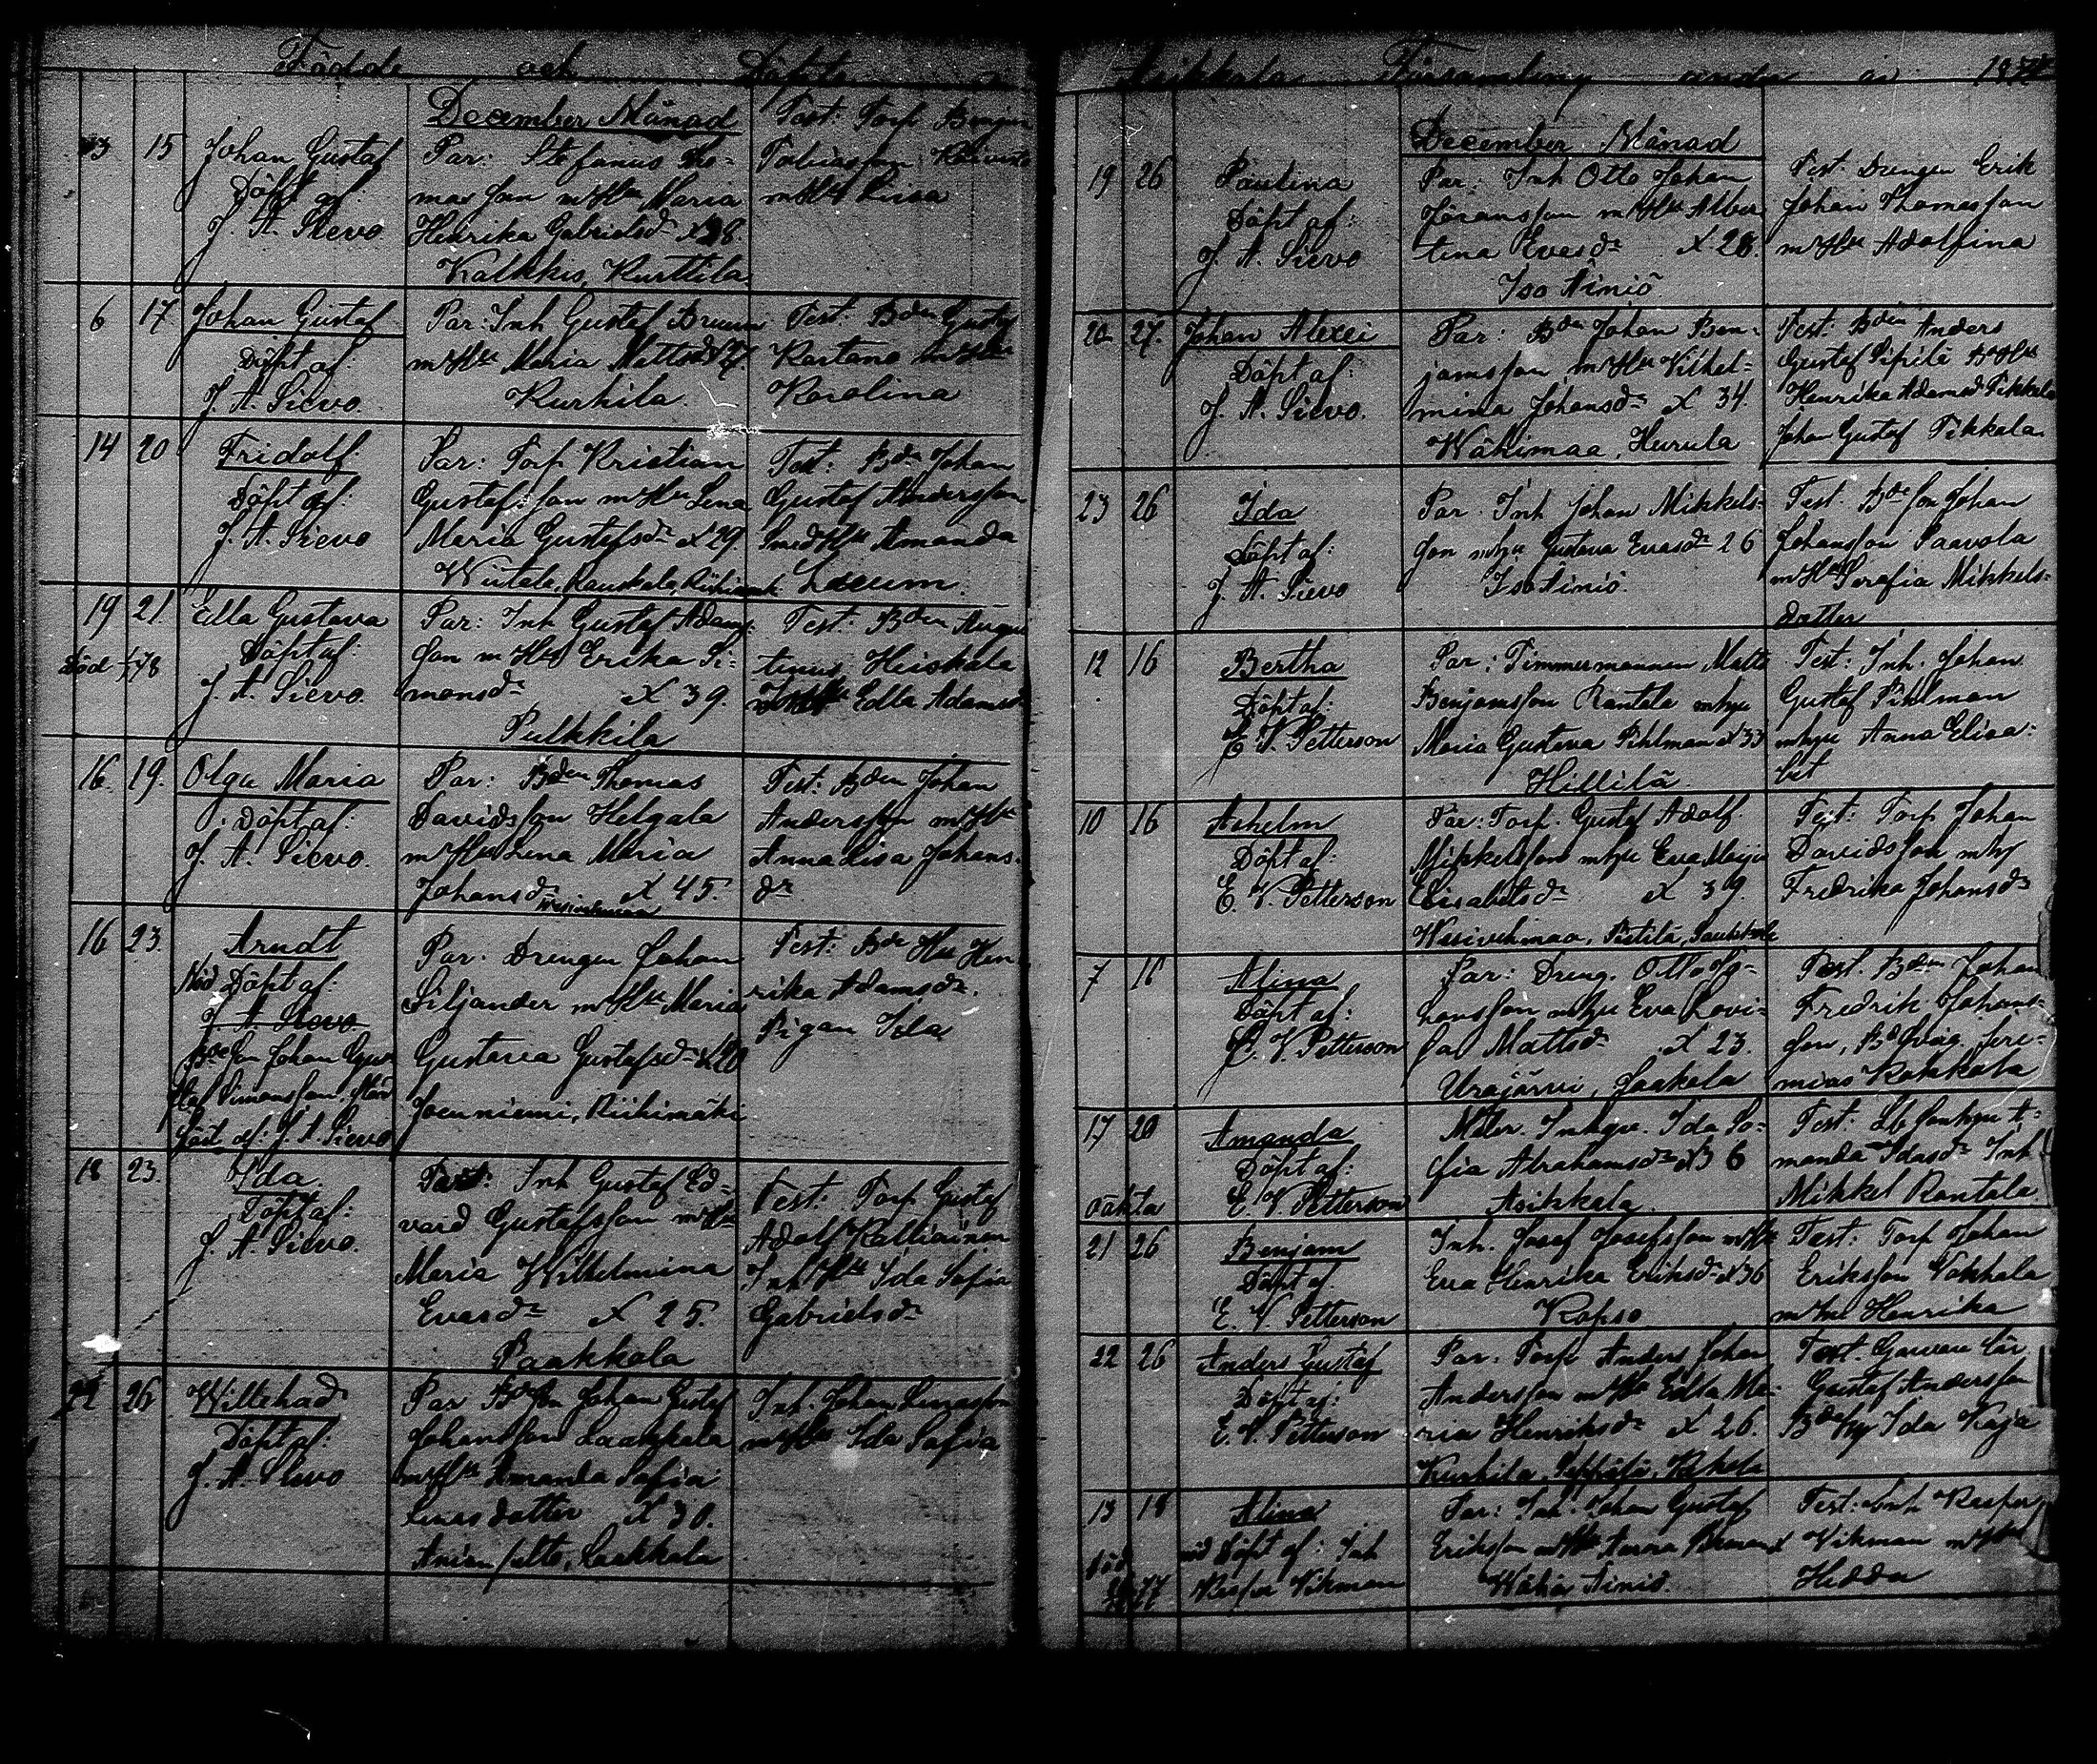 Födde och Döpte i
December Månad
13 15 Johan Gustaf
Döpt af:
J. A. Sievo.
Par: Stefanus Tho-
mas son m Hu Maria
Henrika Gabrielsdr 38.
Kalkkis, Kurttila
Test: Torp Benjam
Tobiasson Koivisto
m Hu Lisa
6 17. Johan Gustaf
Döpt af:
J. A. Sievo.
Par: Inh Gustaf Bruun
m Hu Maria Mattsdr
Kurhila
Test: Bden Gustaf
Rartamo m Hu
Karolina
14 20 Fridolf.
Döpt af:
J. A. Sievo
Par: Torp Kristian
Gustafsson m Hu Lena
Maria Gustafsdr 29.
Test: Bdn Johan
Gustaf Andersson
Smed Hu Amanda
19 21. Edla Gustava
Död 78
Döpt af:
J. A. Sievo.
Par: Inh Gustaf Adams
son m Hu Erika Si-
monsdr 39.
Pulkkila
Test: Bden Augus
tinus Heiskala
Edla Adamsdr
16. 19. Olga Maria
Döpt af:
J. A. Sievo.
Par: Bden Thomas
Davidsson Helgala
m Hu Lena Maria
Johansdr 45.
Test: Bden Johan
Andersson m Hu
Anna Lisa Johans-
dr
16 23. Arndt
Nöd Döpt af:
J. A. Sievo
Bde Son Johan Gus
taf Simonsson
J. A. Sievo
Par. Drengen Johan
Siljander m Hu Maria
Gustava Gustafsdr 28
Joenniemi, Riihimäki
Test: Bde Hu Hen
rika Adamsdr.
Pigan Ida
18 23. Ida.
Döpt af:
J. A. Sievo.
Par: Inh Gustaf Ed-
vard Gustafsson m Hu
Maria Wilhelmina
Evasdr 25.
Paakkola
Test: Torp Gustaf
Adolf Kalliainen
Inh Hu Ida Sofia
Gabrielsdr
22 26 Willehad
Döpt af:
J. A. Sievo
Par Bde Son Johan Gustaf
Johansson Laakkola
m Hu Amanda Sofia
Enas dotter 30.
Laakkola
Inh. Johan
m Hu Ida Sofia
Asikkala Församling 1877
December Månad
19 26 Paulina
Döpt af:
J. A. Sievo
Par: Inh Otto Johan
Göransson m Hu Alber
tina Evasdr 28.
Iso Äiniö
Test: Drengen Erik
Johan Thomasson
m Hu Adolfina
20 27. Johan Alexei
Döpt af:
J. A. Sievo.
Par: Bden Johan Ben-
jamsson m Hu Vilhel-
mina Johansdr 34.
Wähimaa, Hurula
Test: Bden Anders
Gustaf Pipilä
Henrika Adamsd Pikkala
Johan Gustaf Pikkala
23 26 Ida
Döpt af:
J. A. Sievo
Par. Inh Johan Mikkels-
son m hu Gustava Evasdr 26
Iso Äiniö.
Test: Bde son Johan
Johansson Paavola
m Hu Serafia Mikkels-
dotter
12 16 Bertha
Döpt af:
E. V. Petterson
Par: Timmermannen Matts
Benjamsson Rantala m hu
Maria Gustava Pihlman 33
Hillilä
Test: Inh. Johan
Gustaf Pihlman
m hu Anna Elisa-
bet
10 16 Askelm
Döpt af:
E. V. Petterson
Par: Torp. Gustaf Adolf
Mikkelsson m hu Eva Maija
Elisabetsdr 39.
Wesivehmaa, Pietilä
Test: Torp Johan
Davidsson m hu
Fredrika Johansdr
7 18 Alina
Döpt af:
E. V. Petterson
Par: Dreng. Otto Jo-
hansson m hu Eva Lovi-
sa Mattsdr 23.
Urajärvi, Jaakola
Test. Bden Johan
Fredrik Johans-
son, Jere-
mias Kokkala
17 20 Amanda
Döpt af:
oäkta E. V. Petterson
Moder. Ida So-
fia Abrahamsdr 36
Asikkala.
Test: A-
manda Idasdr Inh
Mikkel Rantala
21 26 Benjam
Döpt af
E. V. Petterson
Inh. Josef Josefsson m Hu
Eva Henrika Eriksdr 36
Kopso
Test: Torp Johan
Eriksson Kokkala
m hu Henrika
22 26 Anders Gustaf
Döpt af:
E. V. Petterson
Par: Torp Anders Johan
Andersson m Hu Edla Ma-
ria Henriksdr 26.
Kurhila
Test.
Gustaf Andersson
Ida Kaja
13 18 Alina
Död 77
nöd Döpt af: Inh
Kasper Vikman
Par: Inh. Johan Gustaf
Eriksson m Hu Anna
Wähä Äiniö.
Test: Inh Kasper
Vikman m Hu
Hedda